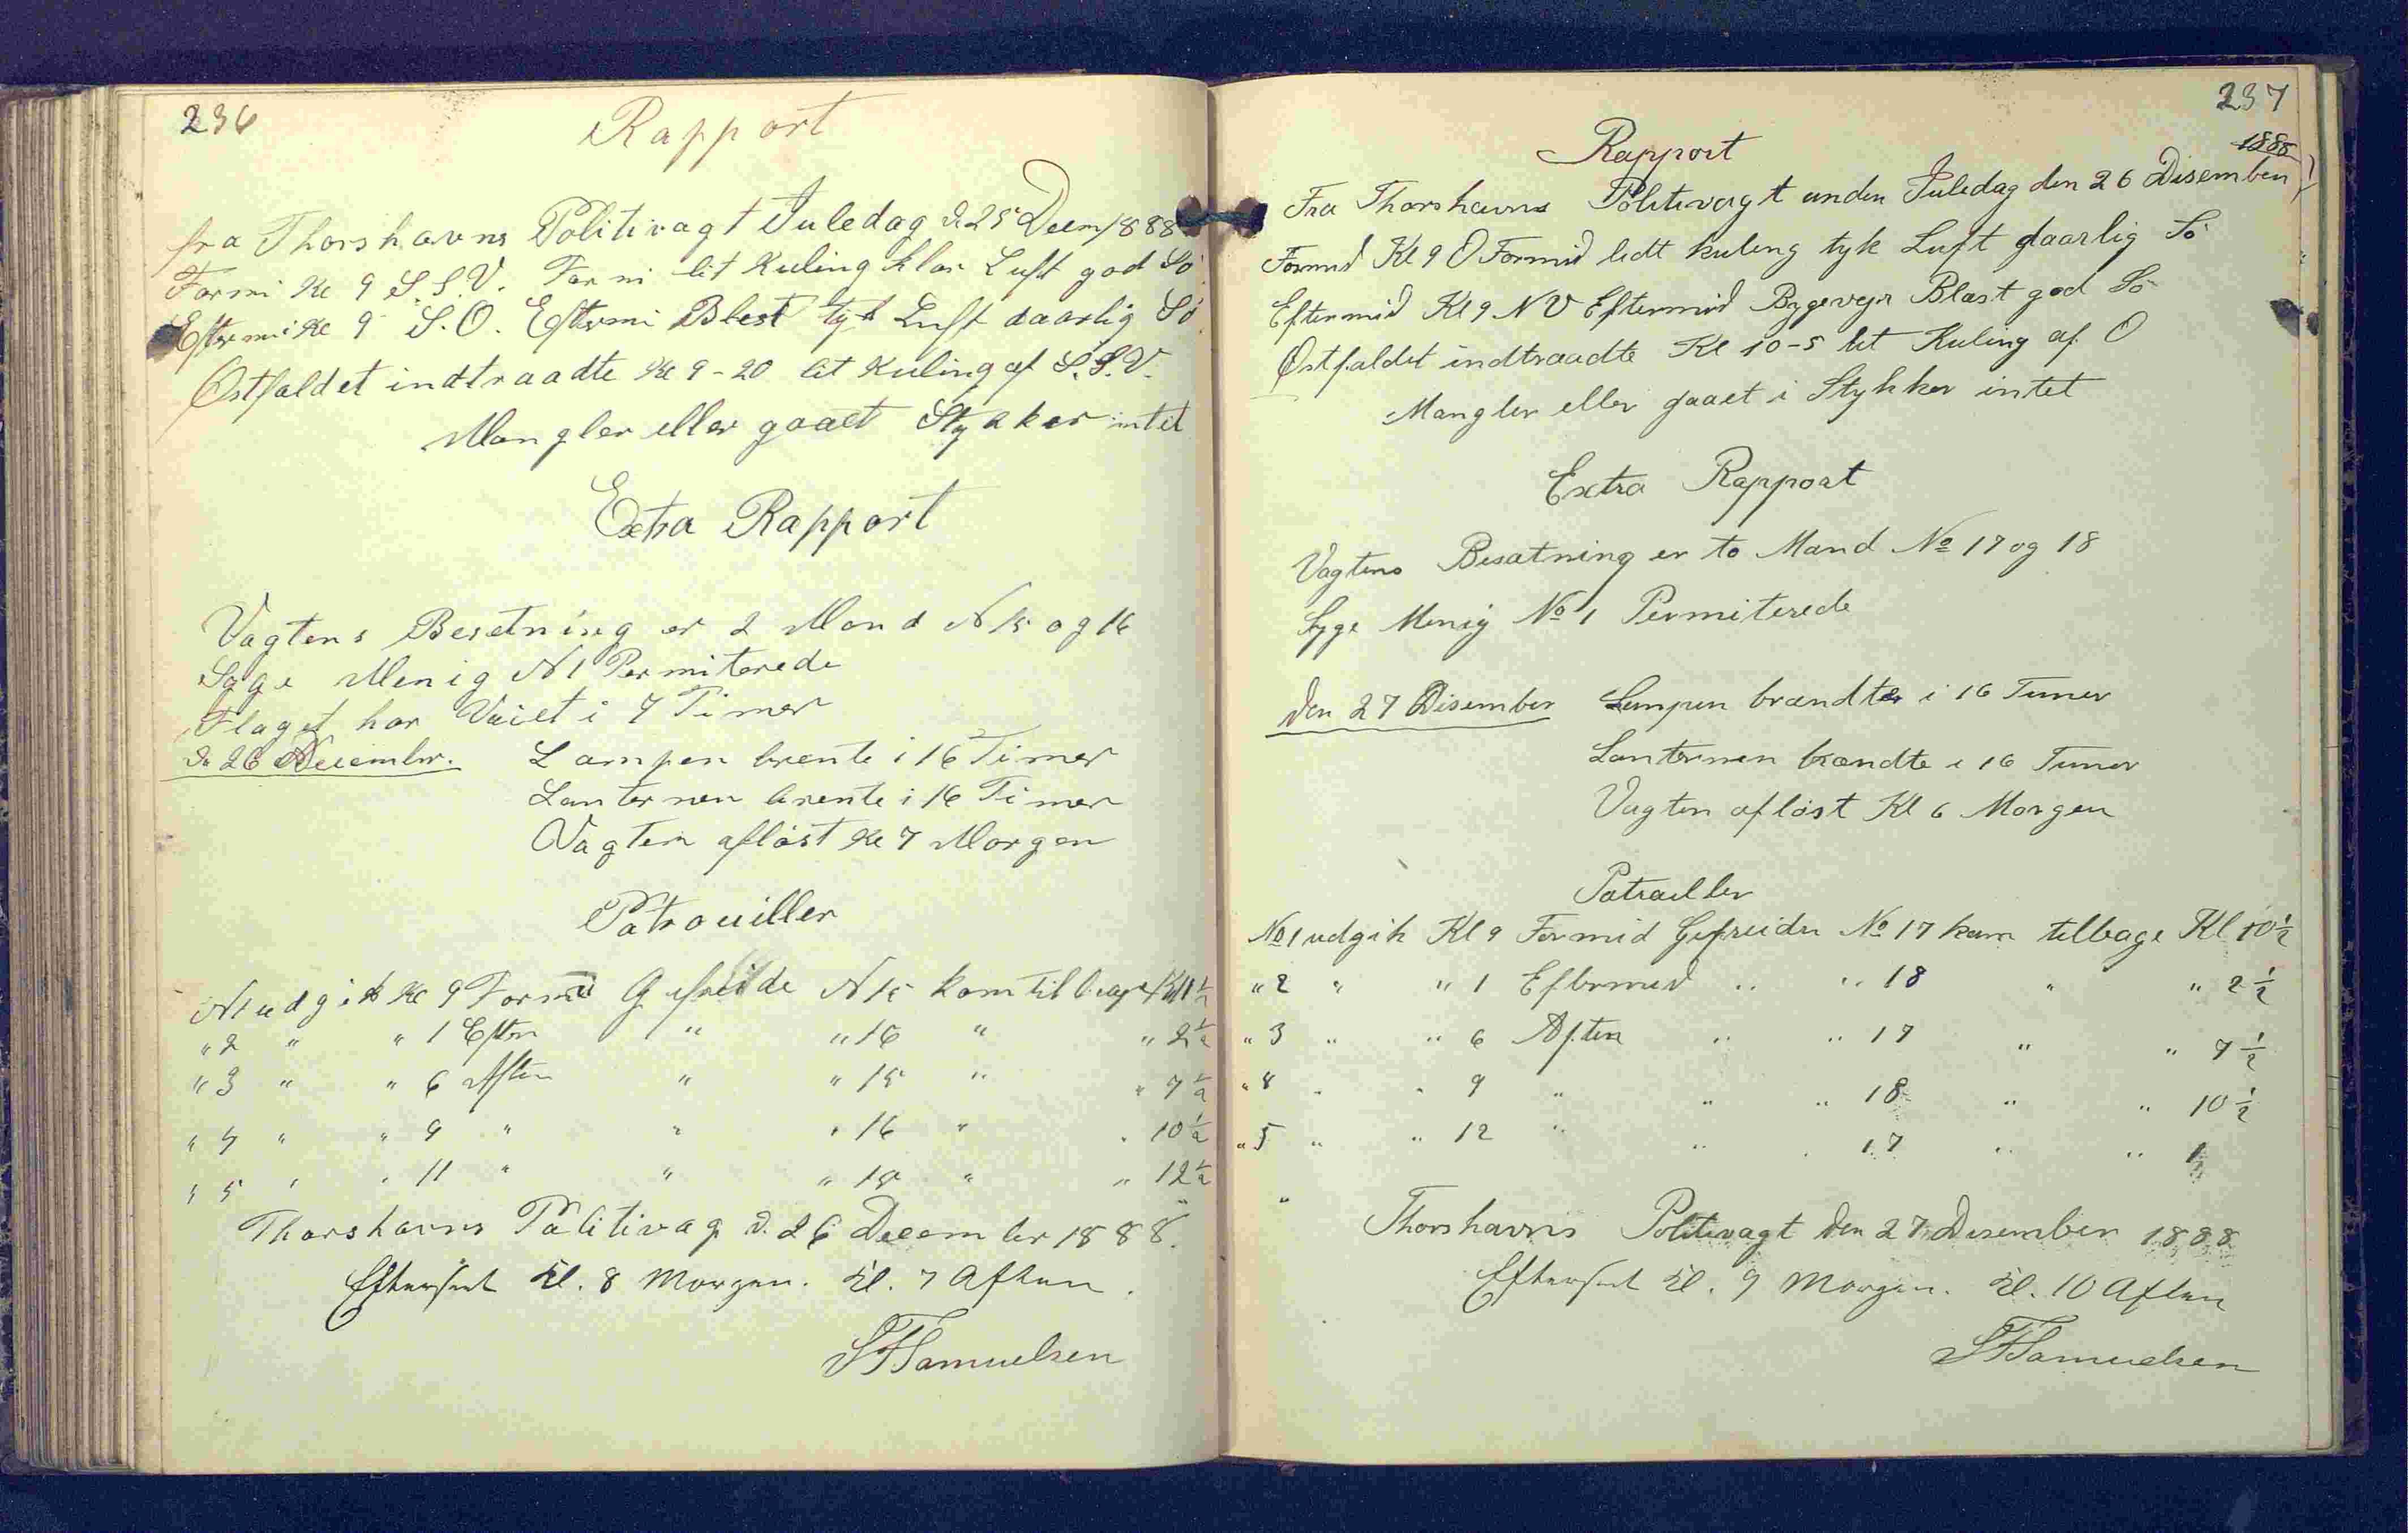 236
Rapport
fra Thorshavns Politivagt Juledag d. 25 Decm 1888
Formi Kl 9 S.S.V. Formi lit Kuling klar Luft god Sö
Eftermi Kl 9 S.O. Eftermi Blest tyk Luft daarlig Sö.
Østfaldet indtraadte Kl 9-20 lit Kuling af S.S.V.
Mangler eller gaaet Stykker intet
Extra Rapport
Vagtens Besetning er 2 Mand N 15 og 16
Syge Menig N 1 Permiterede
Flaget har Vaiet i 7 Timer
d. 26 December. Lampen brente i 16 Timer
Lanternen brente i 16 Timer
Vagten afløst Kl 7 Morgen
Patrouiller
N1 udgik Kl 9 Formi Gefreide N 15 kom tilbage Kl 11 ½
" 2 " " 1 Eftm " " 16 " " 2 ½
" 3 " " 6 Aften " " 15 " " 7 ½
" 4 " " 9 " " " 16 " " 10 ½
" 5 " " 11 " " " 15 " " 12 ½
Thorshavns Politivag d. 26 December 1888.
Efterseet Kl. 8 Morgen. Kl. 7 Aften.
Samuelsen
237
Rapport
1888
Fra Thorshavns Politivagt anden Juledag den 26 Disember
Formid Kl 9 O Formid ledt kuling tyk Luft daarlig Sö
Eftermid Kl 9 NV Eftermid Bygevejr Blæst god Sö
Østfaldet indtraadte Kl 10-5 let Kuling af O
Mangler eller gaaet i Stykker intet
Extra Rapport
Vagtens Besætning er to Mand No 17 og 18
Syge Menig No 1 Permiterede
den 27 Disember Lampen brændte i 16 Timer
Lanternen brændte i 16 Timer
Vagten afløst Kl 6 Morgen
Patrailler
No 1 udgik Kl 9 Formid Gefreider No 17 kam tilbage Kl 10 ½
" 2 " " 1 Eftermid " " 18 " " 2 ½
" 3 " " 6 Aften " " 17 " " 7 ½
" 4 " " 9 " " " 18 " " 10 ½
" 5 " " 12 " " " 17 " " 1
Thorshavns Politivagt den 27 Disember 1888
Efterseet Kl. 9 Morgen. Kl. 10 Aften
Samuelsen